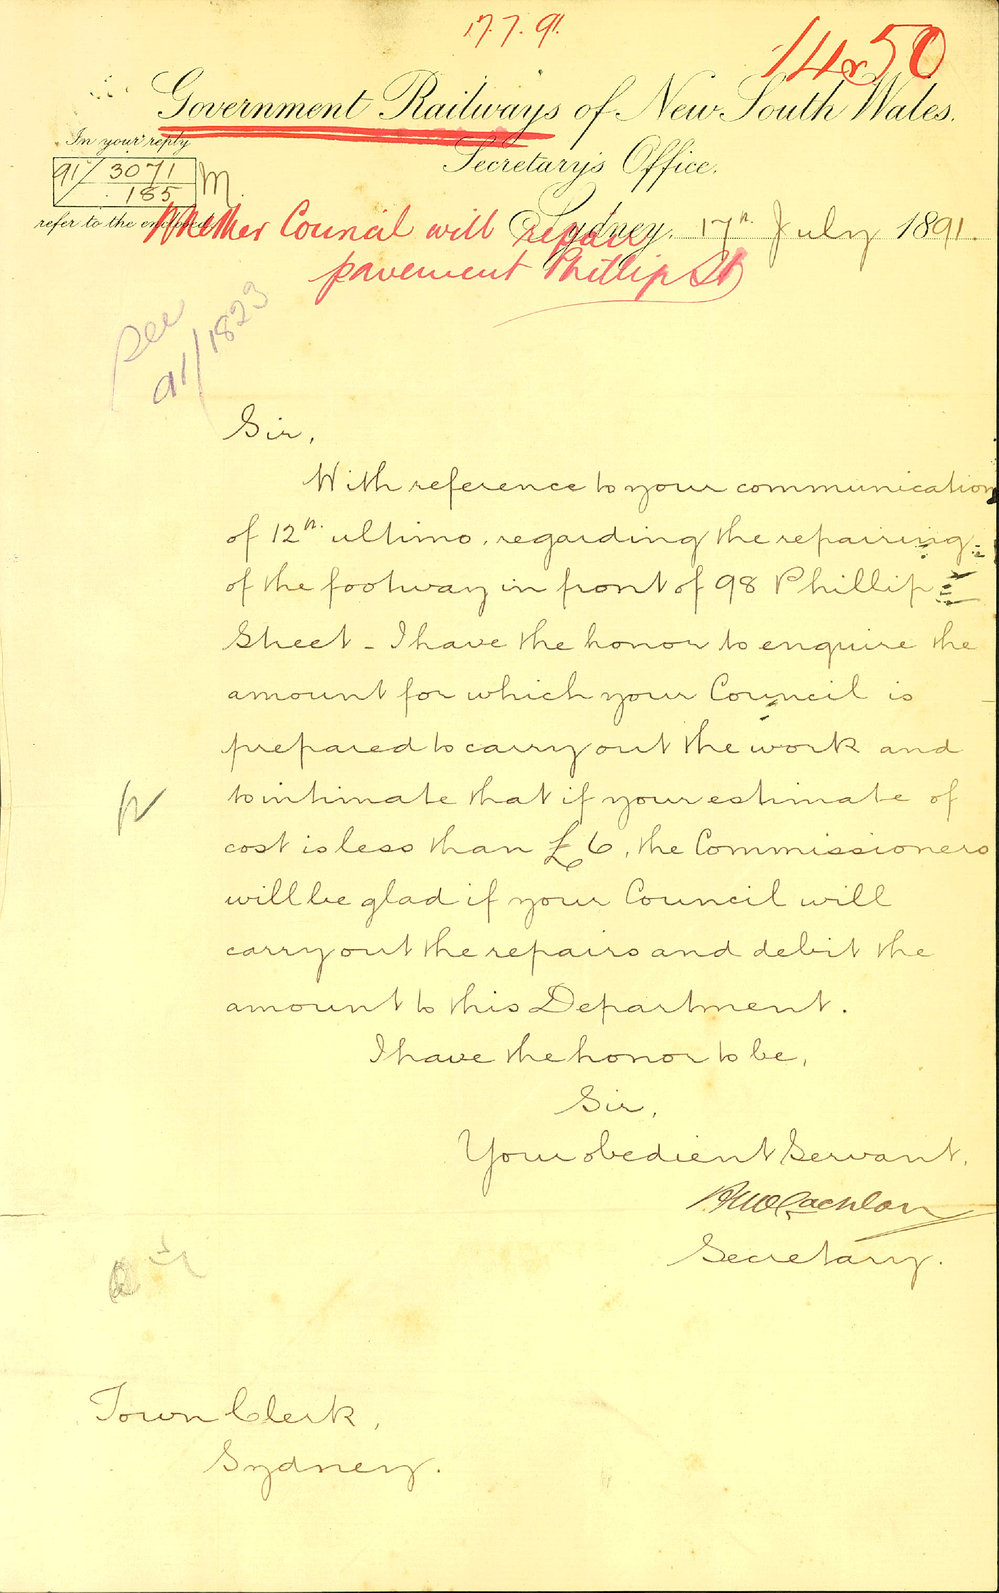 17.7.91.
1450
Government Railways of New South Wales.
Secretary's Office.
In your reply
91/3071
185
M
refer to the enclosed
Sydney, 17th July 1891.
Whether Council will repair
pavement Phillip St
See
91/1823
Sir,
With reference to your communication
of 12th ultimo, regarding the repairing
of the footway in front of 98 Phillip
Street - I have the honor to enquire the
amount for which your Council is
prepared to carry out the work and
to intimate that if your estimate of
cost is less than £6, the Commissioners
will be glad if your Council will
carry out the repairs and debit the
amount to this Department.
I have the honor to be,
Sir,
Your obedient Servant,
McLachlan
Secretary.
Town Clerk,
Sydney.